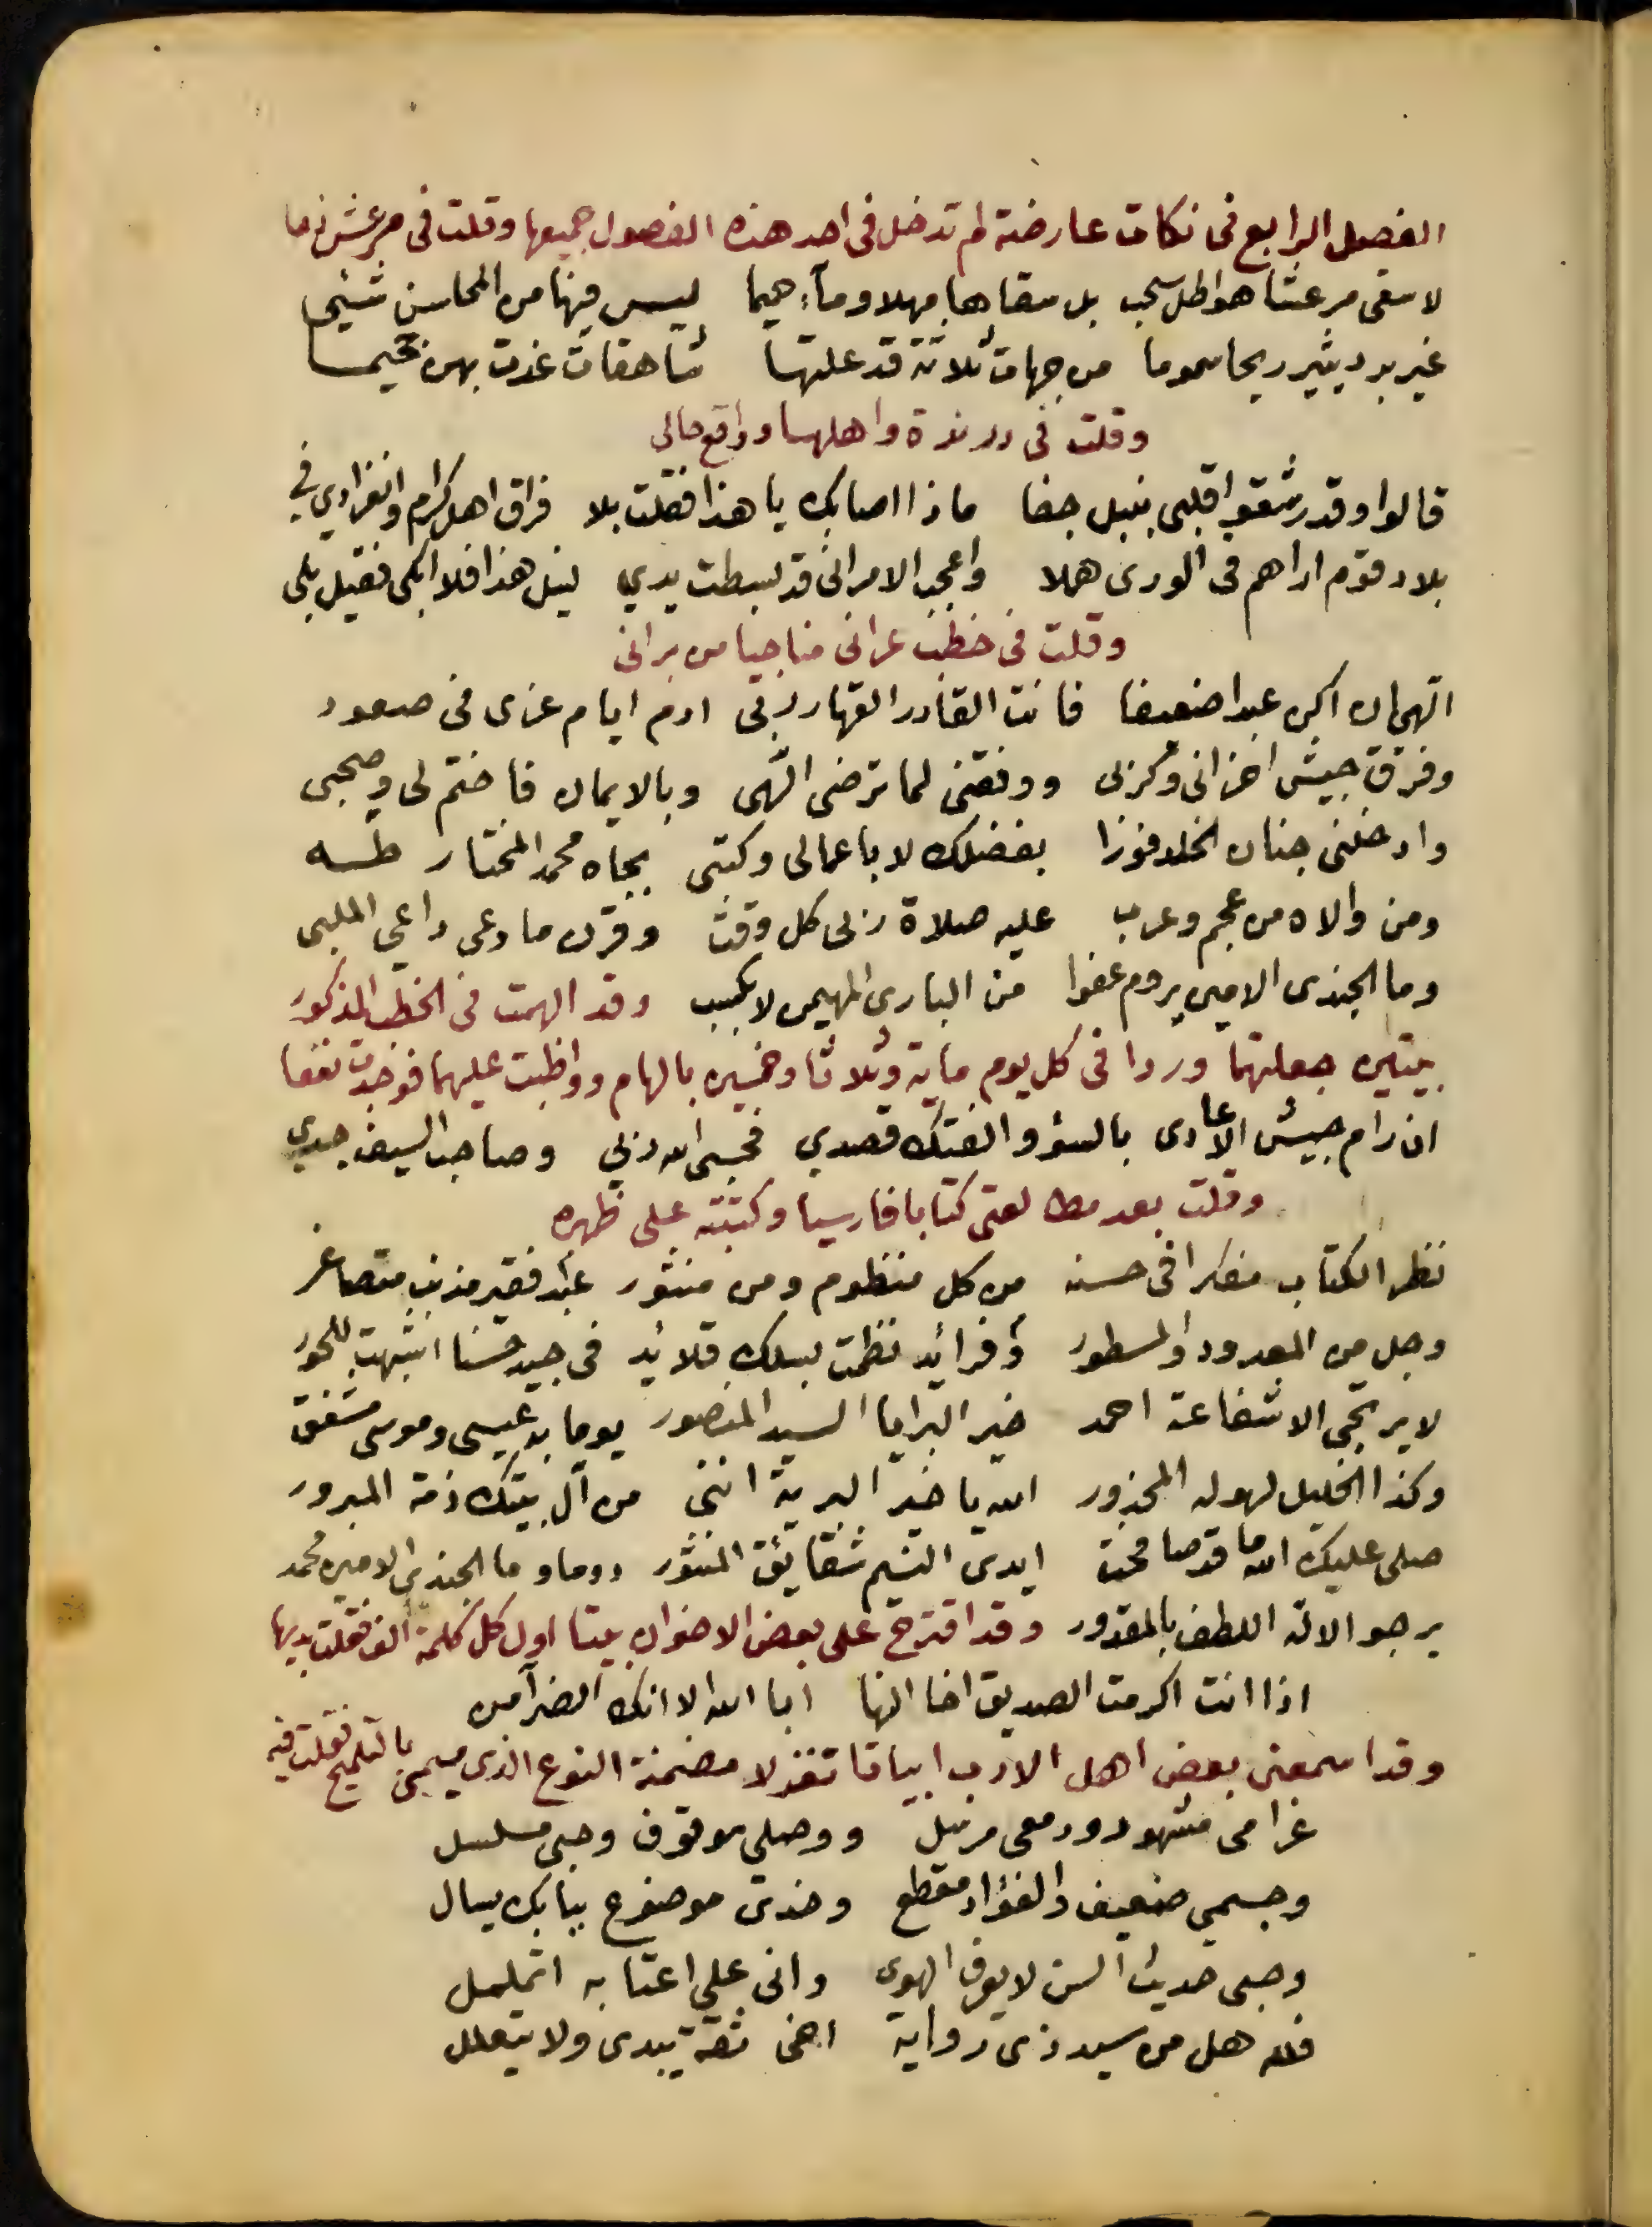 الفصل الرابع فى نكات عارضة لم تدخل فى احد هذه الفصول جميعها وقلت فى مرعش ذما
لا سقى مرعشا هواطل سحب بل سقاها مهلا وماء حميما ليس فيها من المحاسن شئ
غير برد يثير ريحا سموما من جهات ثلاثة قد علتها شاهقات غدت بهن جحيما
وقلت فى درندة واهلها وواقع حالى
قالوا وقد رشقوا قلبى بنبل جفا ماذا اصابك يا هذا فقلت بلا فراق اهل كرام وانفرادي في
بلاد قوم اراهم فى الورى هملا واعجب الامر انى قد بسطت يدي لنيل هذا فلا ابكى فقيل بلى
وقلت فى خطب عرانى مناجيا من برانى
الهى ان اكن عبدا ضعيفا فانت القادر القهار ربى ادم ايام عزى فى صعود
وفرق جيش احزانى وكربى ووفقنى لما ترضى الهى وبالايمان فاختم لى وصحبى
وادخلنى جنان الخلد فوزا بفضلك لا باعمالى وكتبى بجاه محمد المختار طه
ومن والاه من عجم وعرب عليه صلاة ربى كل وقت وقرن ما دعى داعي الملبى
وما الجندى الامين يروم عفوا من البارى المهيمن لا بكسب وقد الهمت فى الخطب المذكور
بيتين جعلتهما وردا فى كل يوم ماية وثلاثا وخمسين بالهام وواظبت عليهما فوجدت نفعا
ان رام جيش الاعادى بالسؤ والفتك قصدي فحسبى الله ربي وصاحب السيف جدي
وقلت بعد مطالعتى كتابا فارسيا وكتبته على ظهره
نظر الكتاب مفكرا فى حسنه من كل منظوم ومن منثور عبد فقير مذنب متصاغر
وجل من المعدود والمسطور وفرائد نظمت بسلك قلائد فى جيد حسنا اشبهت للحور
لا يرتجى الا شفاعة احمد خير البرايا السيد المنصور يوما به عيسى وموسى مشفق
وكذا الخليل لهوله المحذور الله يا خير البرية اننى من آل بيتك ذمة المبرور
صلى عليك الله ما قد صافحت ايدى النسيم شقايق المنثور دوما وما الجندي الامين محمد
يرجو الاله اللطف بالمقدور وقد اقترح على بعض الاخوان بيتا اول كل كلمة الف فقلت بديها
اذا انت اكرمت الصديق اخا النها ابا الله الا انك الضرآمن
وقد اسمعنى بعض اهل الادب ابياتا تغزلا مضمنة النوع الذى يسمى بالتلميح فقلت فيه
غرامى مشهود ودمعى مرسل ووصلى موقوف وحبى مسلسل
وجسمي ضعيف والفؤاد مقطع وخدى موضوع ببابك يسال
وحبى حديث السن لا يعرف الهوى وانى على اعتابه اتململ
فلله هل من سيد ذى رواية اخى ثقة يبدى ولا يتعلل